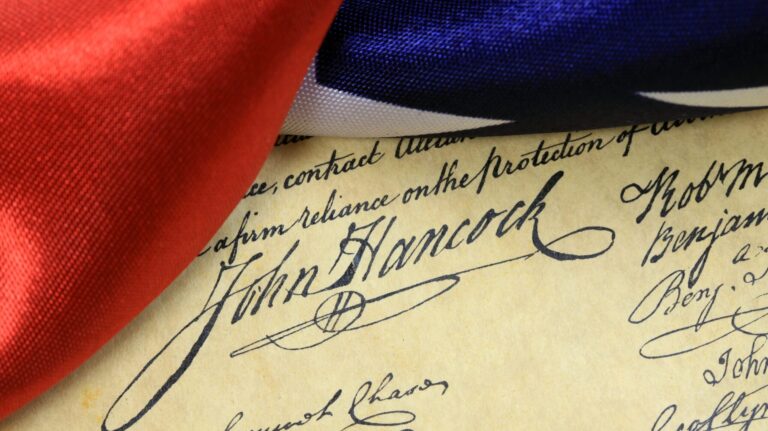 ce, contract
a firm reliance on the protection of
John Hancock
Rob
Benjam
Benj.
Chase
John